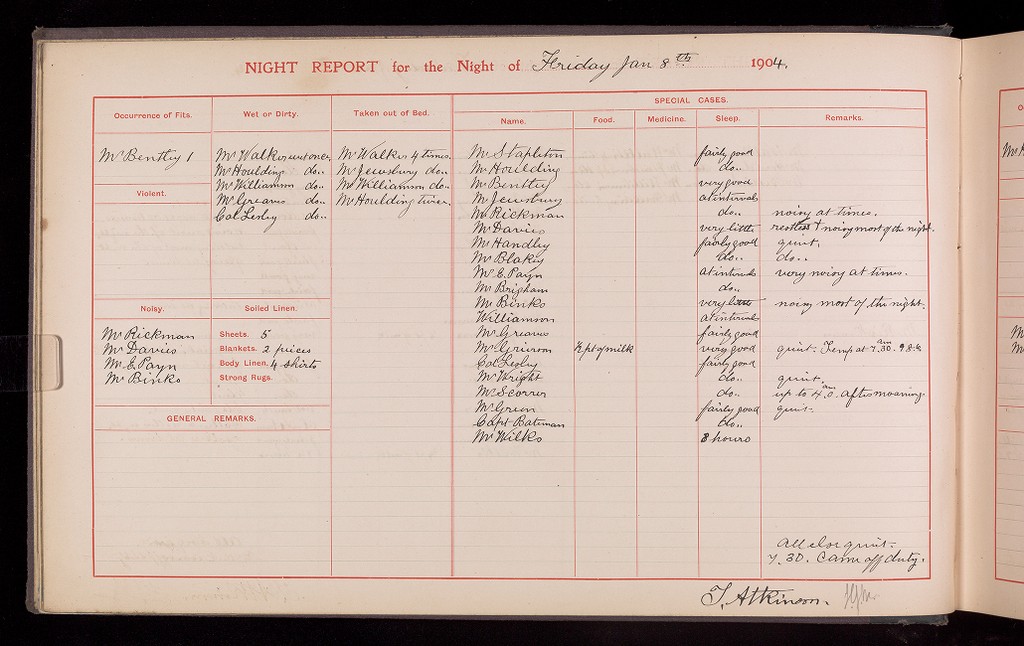 NIGHT REPORT for the Night of Friday Jan 8th 1904.
Occurrence of Fits.
Mr Bentley 1
Violent.
Noisy.
Mr Rickman
Mr Davies
Mr E. Payn
Mr Binks
Wet or Dirty.
Mr Walker wet once.
Mr Houlding do..
Mr Williamson do..
Mr Greaves do..
Col Lesley do..
Soiled Linen.
Sheets. 5
Blankets. 2 pieces
Body Linen. 4 shirts
Strong Rugs.
GENERAL REMARKS.
Taken out of Bed.
Mr Walker 4 times.
Mr Jewsbury do..
Mr Williamson do..
Mr Houlding twice.
SPECIAL CASES.
Name. Food. Medicine. Sleep. Remarks.
Mr Stapleton fairly good
Mr Houlding do..
Mr Bentley very good
Mr Jewsbury at intervals
Mr Rickman do.. noisy at times.
Mr Davies very little restless & noisy most of the night.
Mr Handley fairly good quiet.
Mr Blakey do.. do..
Mr E. Payn at intervals very noisy at times.
Mr Brigham do..
Mr Binks very little noisy most of the night.
Williamson at intervals
Mr Greaves fairly good
Mr ½ pt of milk very good quiet. Temp at 7.30 am 98.
Col Lesley fairly good
Mr Wright do.. quiet.
Mr Scorrer do.. up to 4.0 am after moaning.
Mr Green fairly good quiet.
Capt Bateman do..
Mr Wilks 8 hours
All else quiet.
7.30. Came off duty.
T. Atkinson.